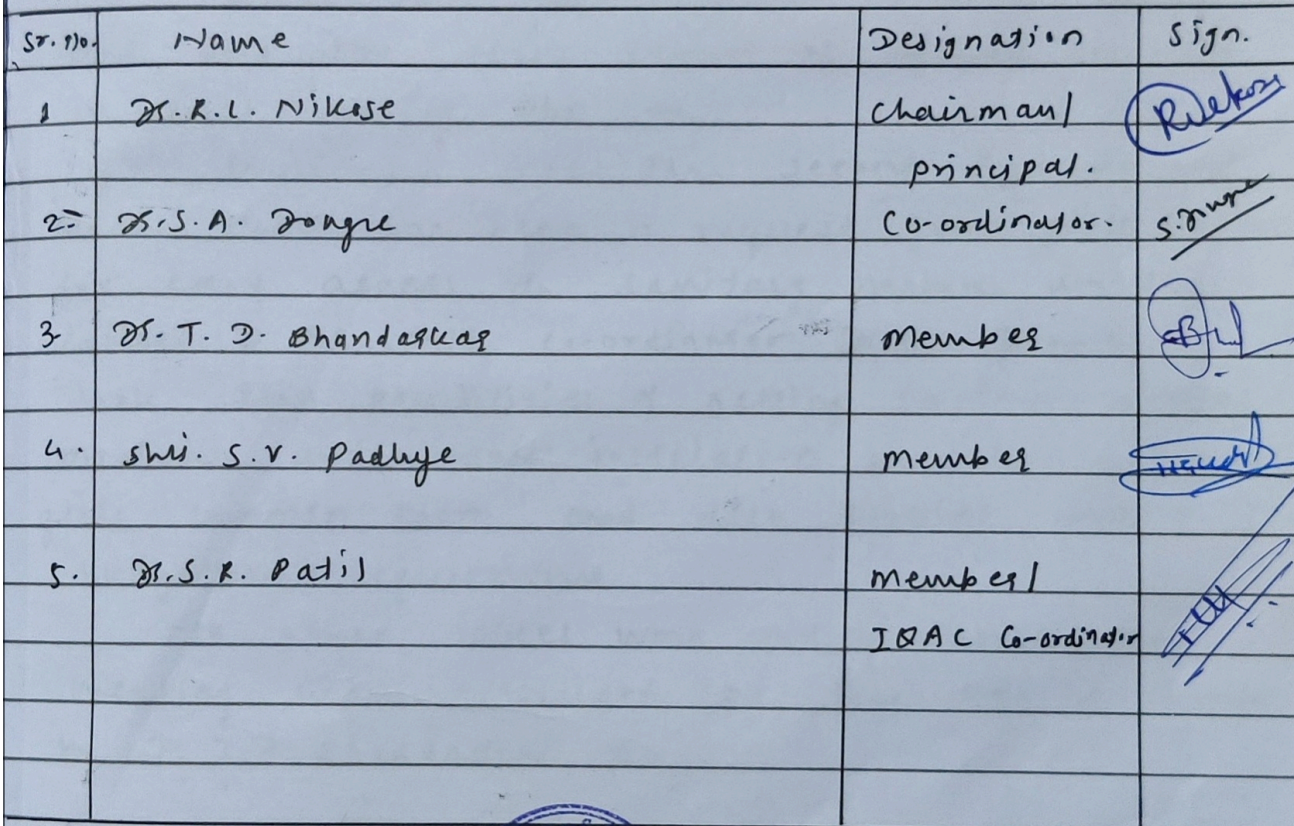 Sr. No. Name Designation Sign.
1 Dr. R. L. Nikose Chairman/
principal.
2 Dr. S. A. Dongre Co-ordinator.
3 Dr. T. D. Bhandarkar Member
4. Shri. S. V. Padhye Member
5. Dr. S. R. Patil Member/
IQAC Co-ordinator